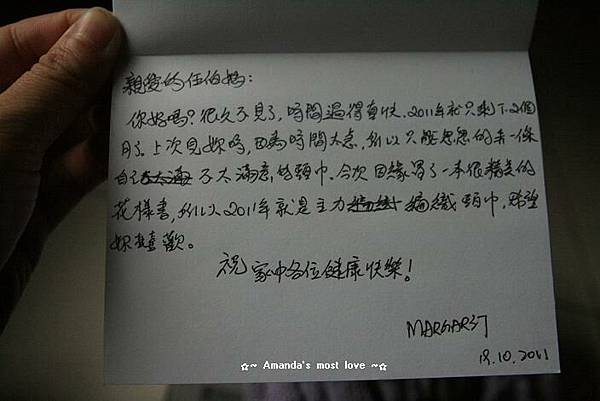 親愛的任伯媽：
你好嗎？很久不見了，時間過得真快，2011年就只剩下2個
月了。上次見妳時，因為時間太急，所以只能匆匆的弄一條
自己太滿 不太滿意的頸巾。今次因緣買了一本很精美的
花樣書，所以2011年就是主力 編織頸巾，希望
妳喜歡。
祝 家中各位健康快樂！
MARGARET
18.10.2011
✩~ Amanda's most love ~✩